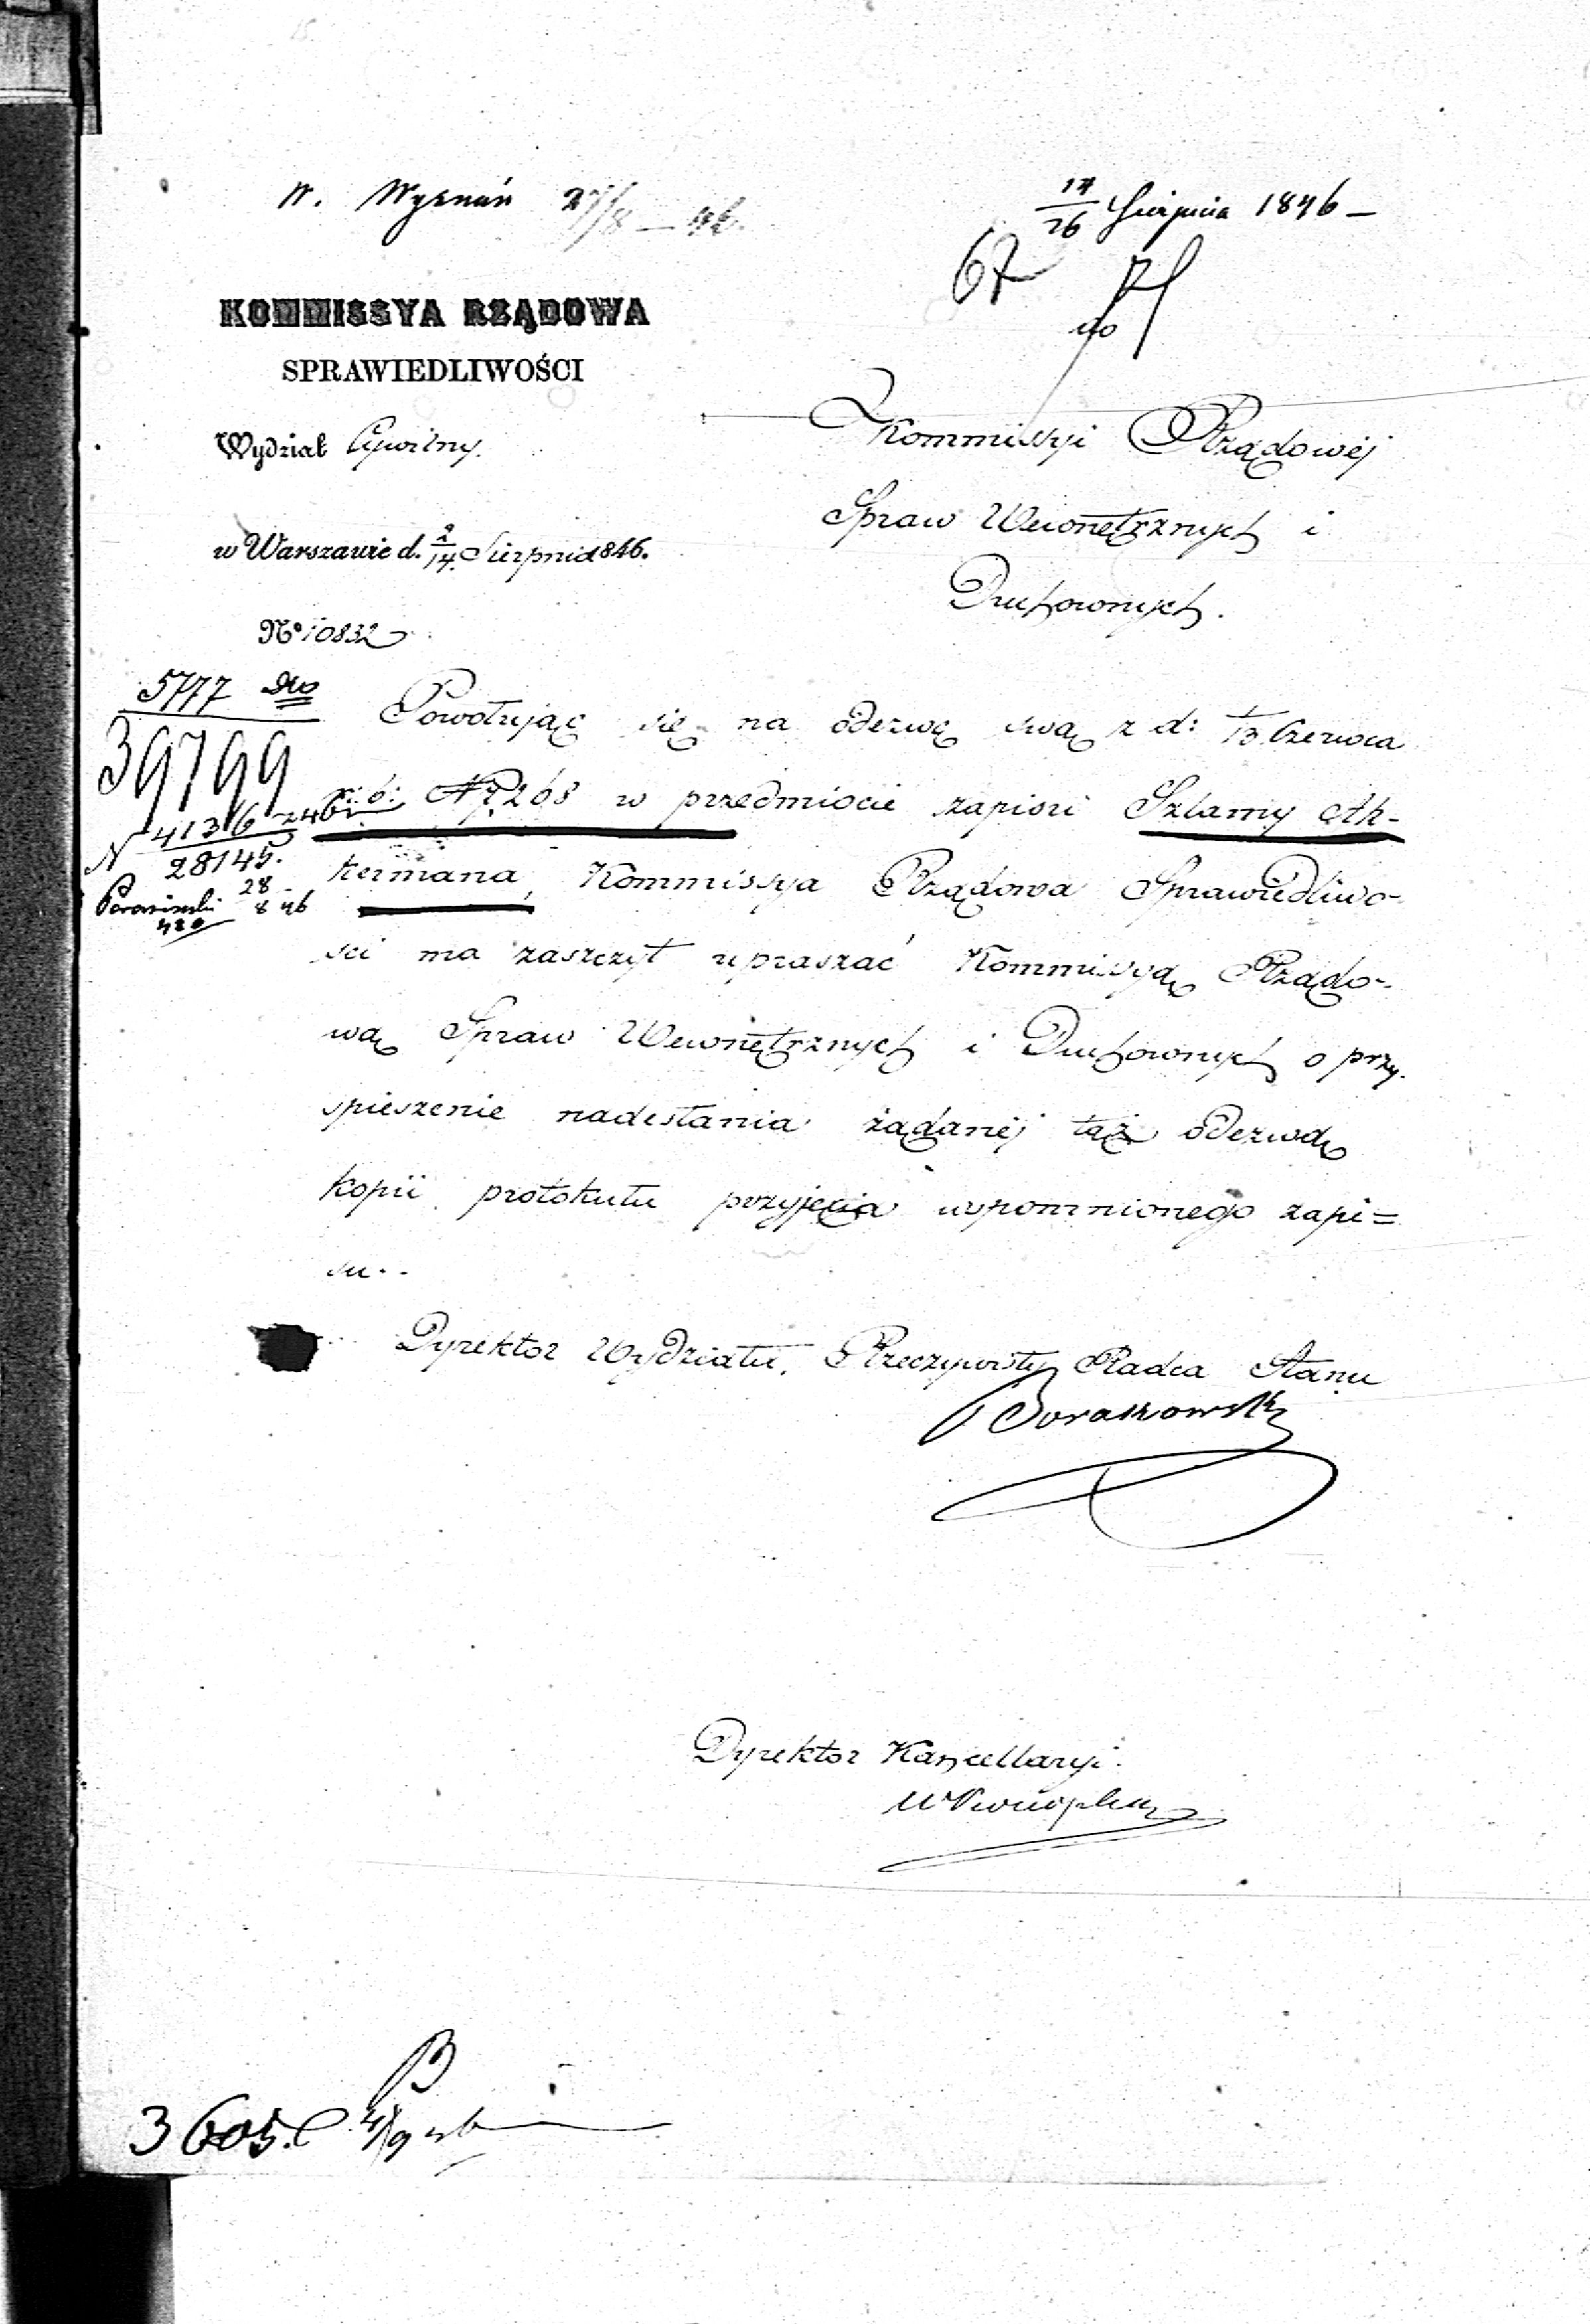 W. Wyznań 27/8 – 46.
14/26 Sierpnia 1846 –
67
KOMMISSYA RZĄDOWA
SPRAWIEDLIWOŚCI
Wydział Cywilny.
w Warszawie d. 2/14. Sierpnia 1846.
No 10832
Kommissyi Rządowéj
Spraw Wewnętrznych i
Duchownych.
5777
39799
N 41316
28145.
28
8 46
Powołując się na odezwę swą z d: 1/13. Czerwca
r: b: N 7,268 w przedmiocie zapisu Szlamy Ak-
kermana, Kommissya Rządowa Sprawiedliwo-
sci ma zaszczyt upraszać Kommissyą Rządo-
wą Spraw Wewnętrznych i Duchownych o przy-
spieszenie nadesłania żądanéj tąż odezwą
kopii protokułu przyjęcia wspomnionego zapi=
su..
Dyrektor Wydziału, Rzeczywisty Radca Stanu
Dyrektor Kancellaryi.
B
3605.